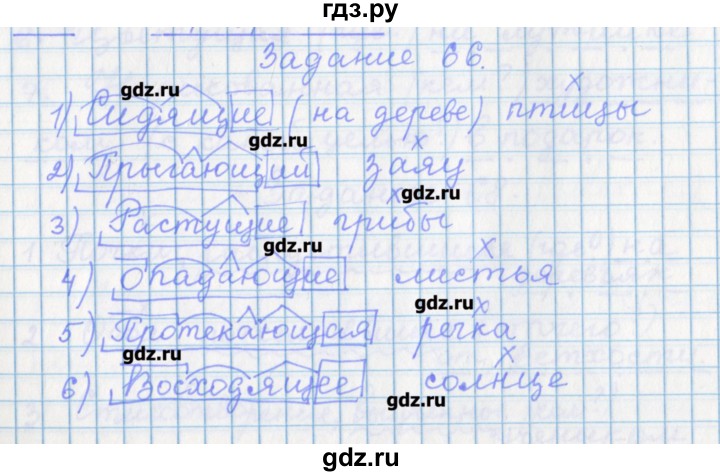 гдз.ру
Задание 66.
gdz.ru
1) Сидящие (на дереве) птицы
gdz.ru
2) Прыгающий заяц
gdz.ru
3) Растущие грибы
gdz.ru
4) Опадающие листья
gdz.ru
5) Протекающая речка
gdz.ru
6) Восходящее солнце
gdz.ru